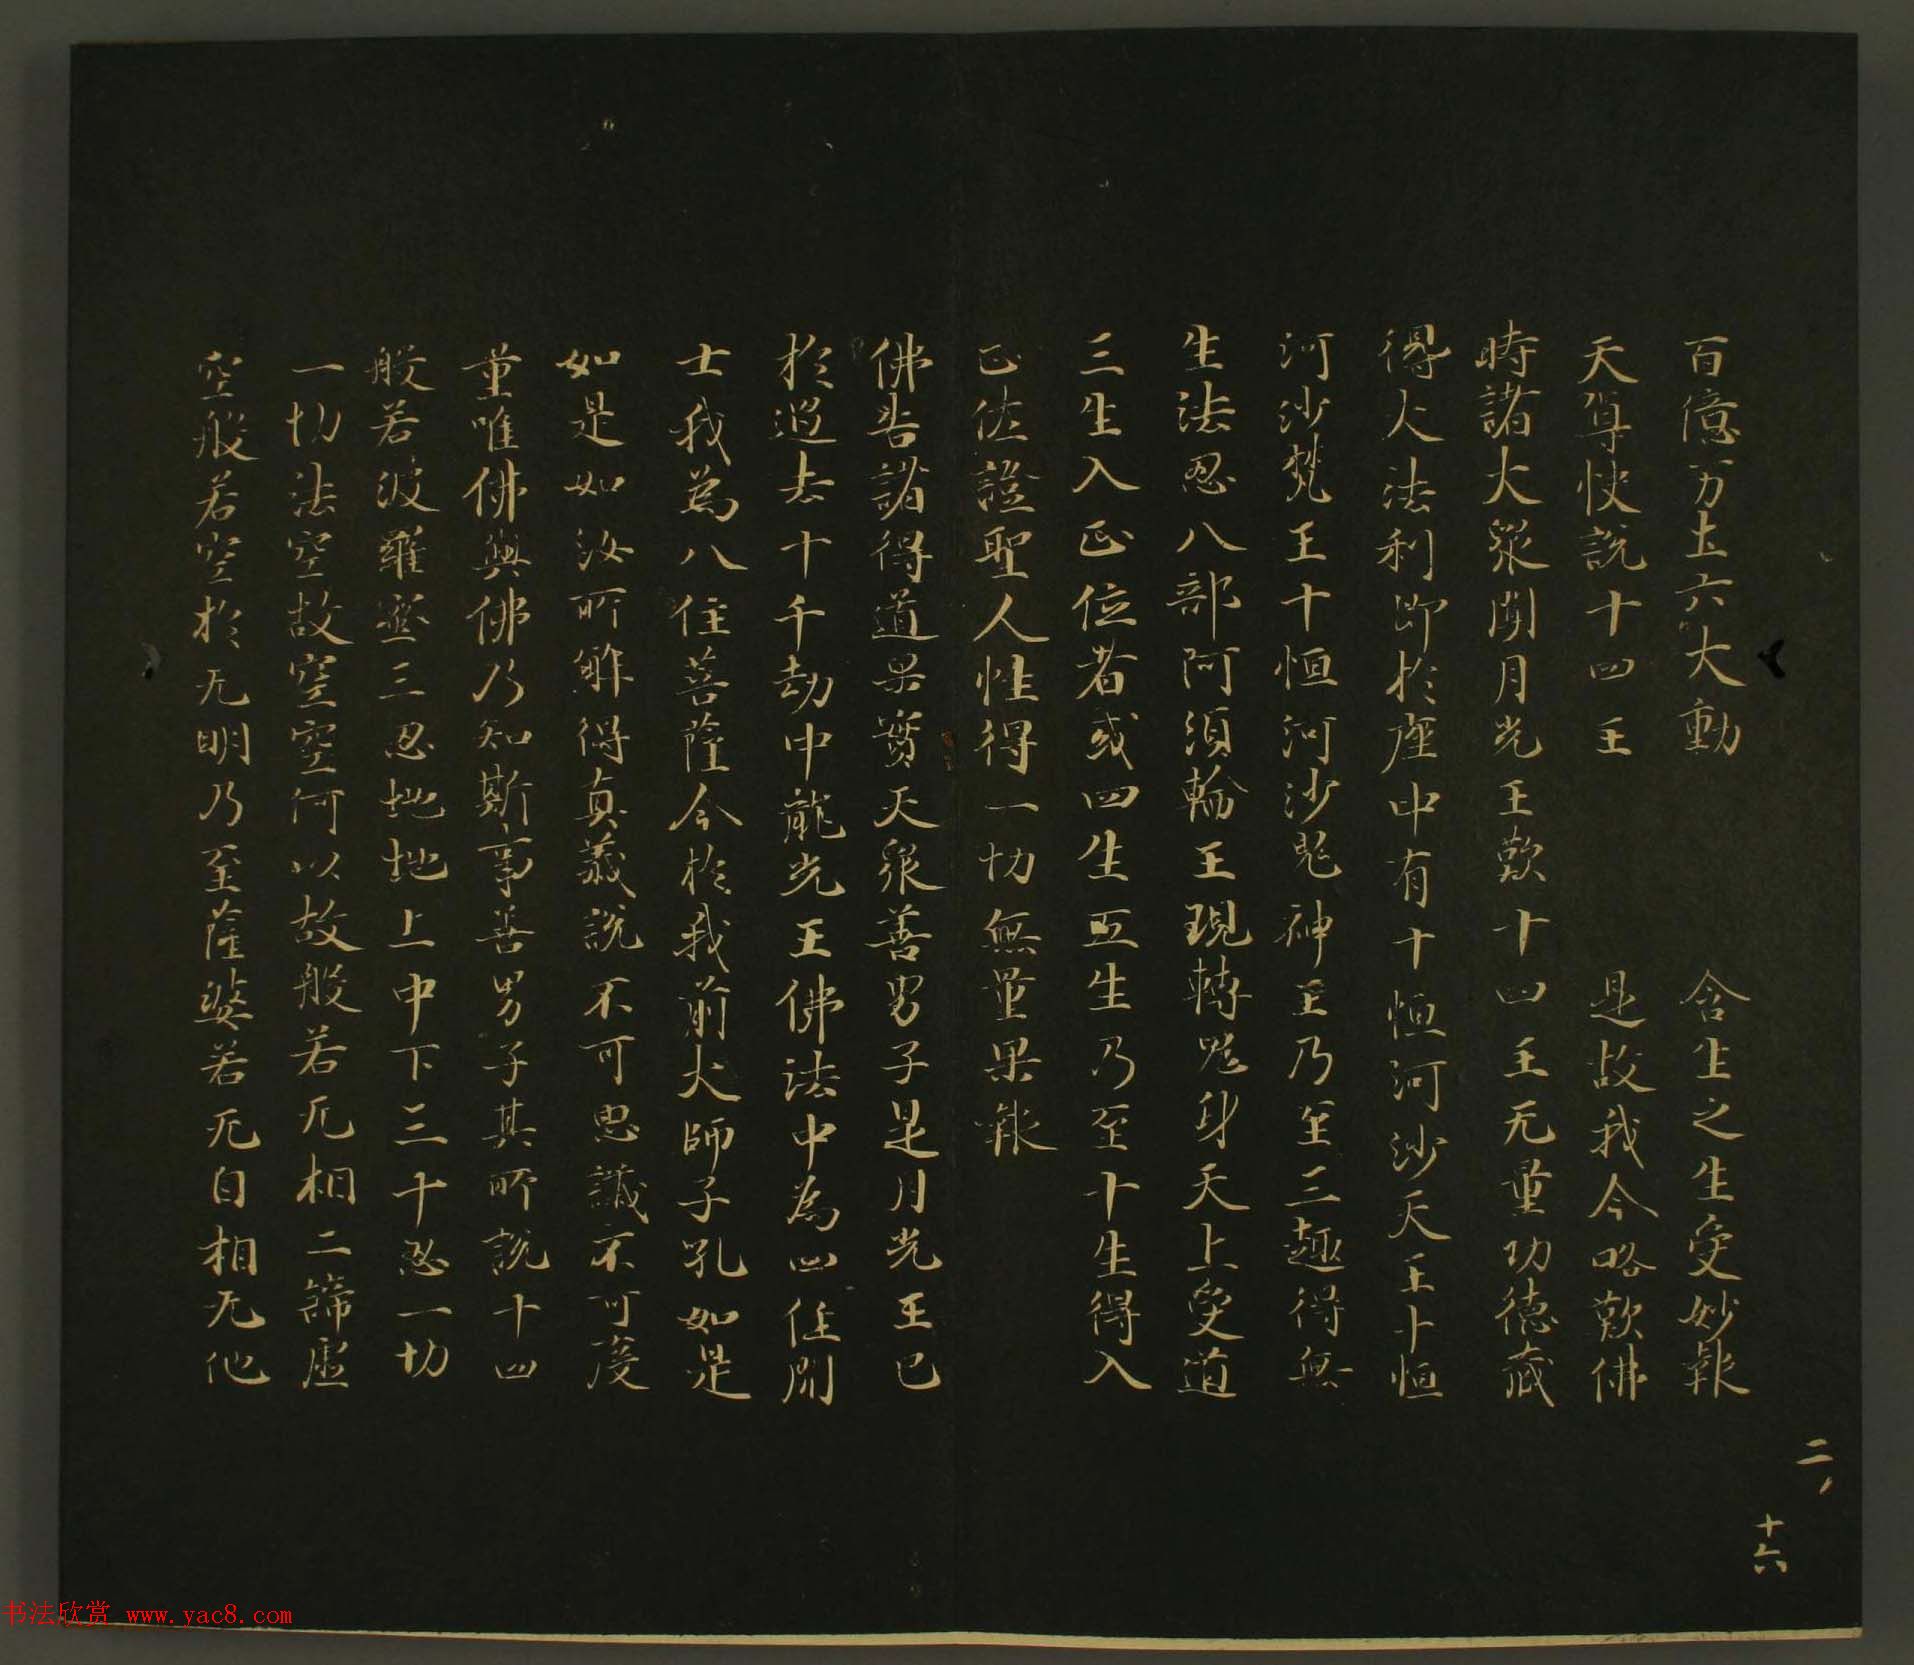 百億万土六大動　含生之生受妙報
天尊快說十四王　是故我今略歎佛
時諸大衆聞月光王歎十四王无量功德藏
得大法利即於座中有十恒河沙天王十恒
河沙梵王十恒河沙鬼神王乃至三趣得無
生法忍八部阿須輪王現轉鬼身天上受道
三生入正位者或四生五生乃至十生得入
正位證聖人性得一切無量果報
佛告諸得道果實天衆善男子是月光王已
於過去十千劫中龍光王佛法中為四住開
士我為八住菩薩今於我前大師子吼如是
如是如汝所解得真義說不可思議不可度
量唯佛與佛乃知斯事善男子其所說十四
般若波羅蜜三忍地地上中下三十忍一切
一切法空故空空何以故般若无相二諦虛
空般若空於无明乃至薩婆若无自相无他
二
十六
书法欣赏 www.yac8.com